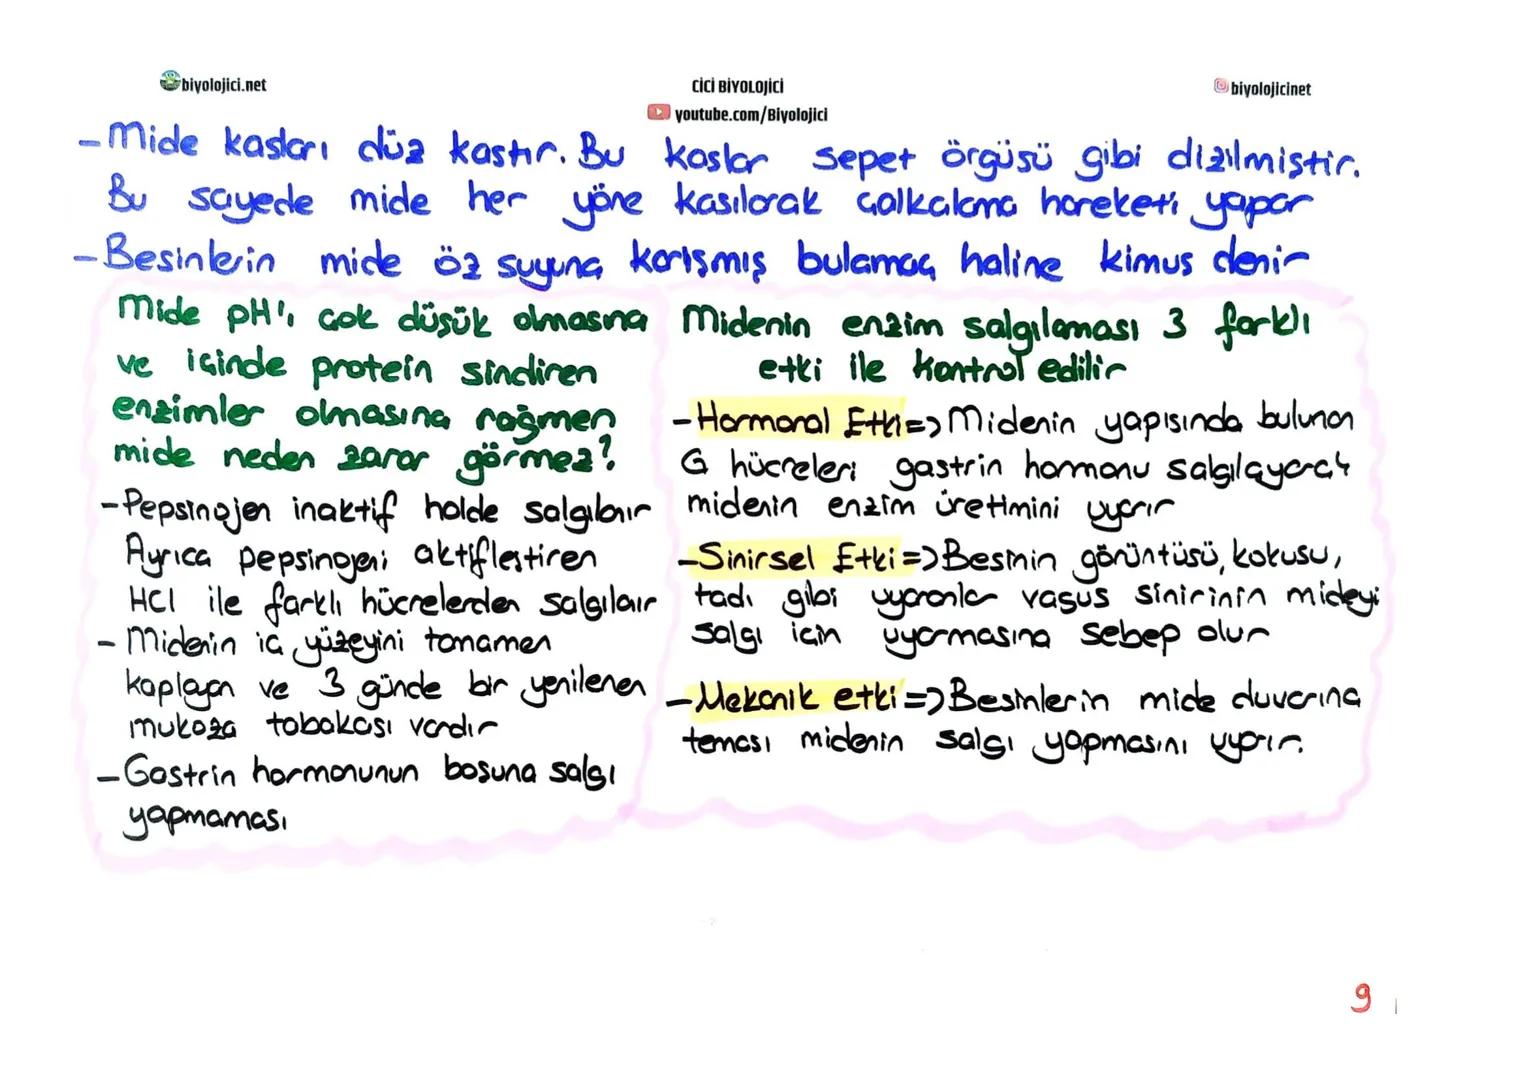 biyolojici.net
CİCİ BİYOLOJİCİ
youtube.com/Biyolojici
biyolojicinet
- Mide kasları düz kastır. Bu kaslar sepet örgüsü gibi dizilmiştir.
Bu sayede mide her yöne kasılarak çalkalama hareketi yapar
- Besinlerin mide öz suyuna karışmış bulamaç haline kimus denir
Mide pH'ı çok düşük olmasına
ve içinde protein sindiren
enzimler olmasına rağmen
mide neden zarar görmez?
- Pepsinojen inaktif halde salgılanır
Ayrıca pepsinojeni aktifleştiren
HCl ile farklı hücrelerden salgılanır
- Midenin iç yüzeyini tamamen
kaplayan ve 3 günde bir yenilenen
mukoza tabakası vardır
- Gastrin hormonunun boşuna salgı
yapmaması
Midenin enzim salgılaması 3 farklı
etki ile kontrol edilir
- Hormonal Etki => Midenin yapısında bulunan
G hücreleri gastrin hormonu salgılayarak
midenin enzim üretimini uyarır
- Sinirsel Etki => Besinin görüntüsü, kokusu,
tadı gibi uyaranlar vagus sinirinin mideyi
salgı için uyarmasına sebep olur
- Mekanik etki => Besinlerin mide duvarına
teması midenin salgı yapmasını uyarır.
9